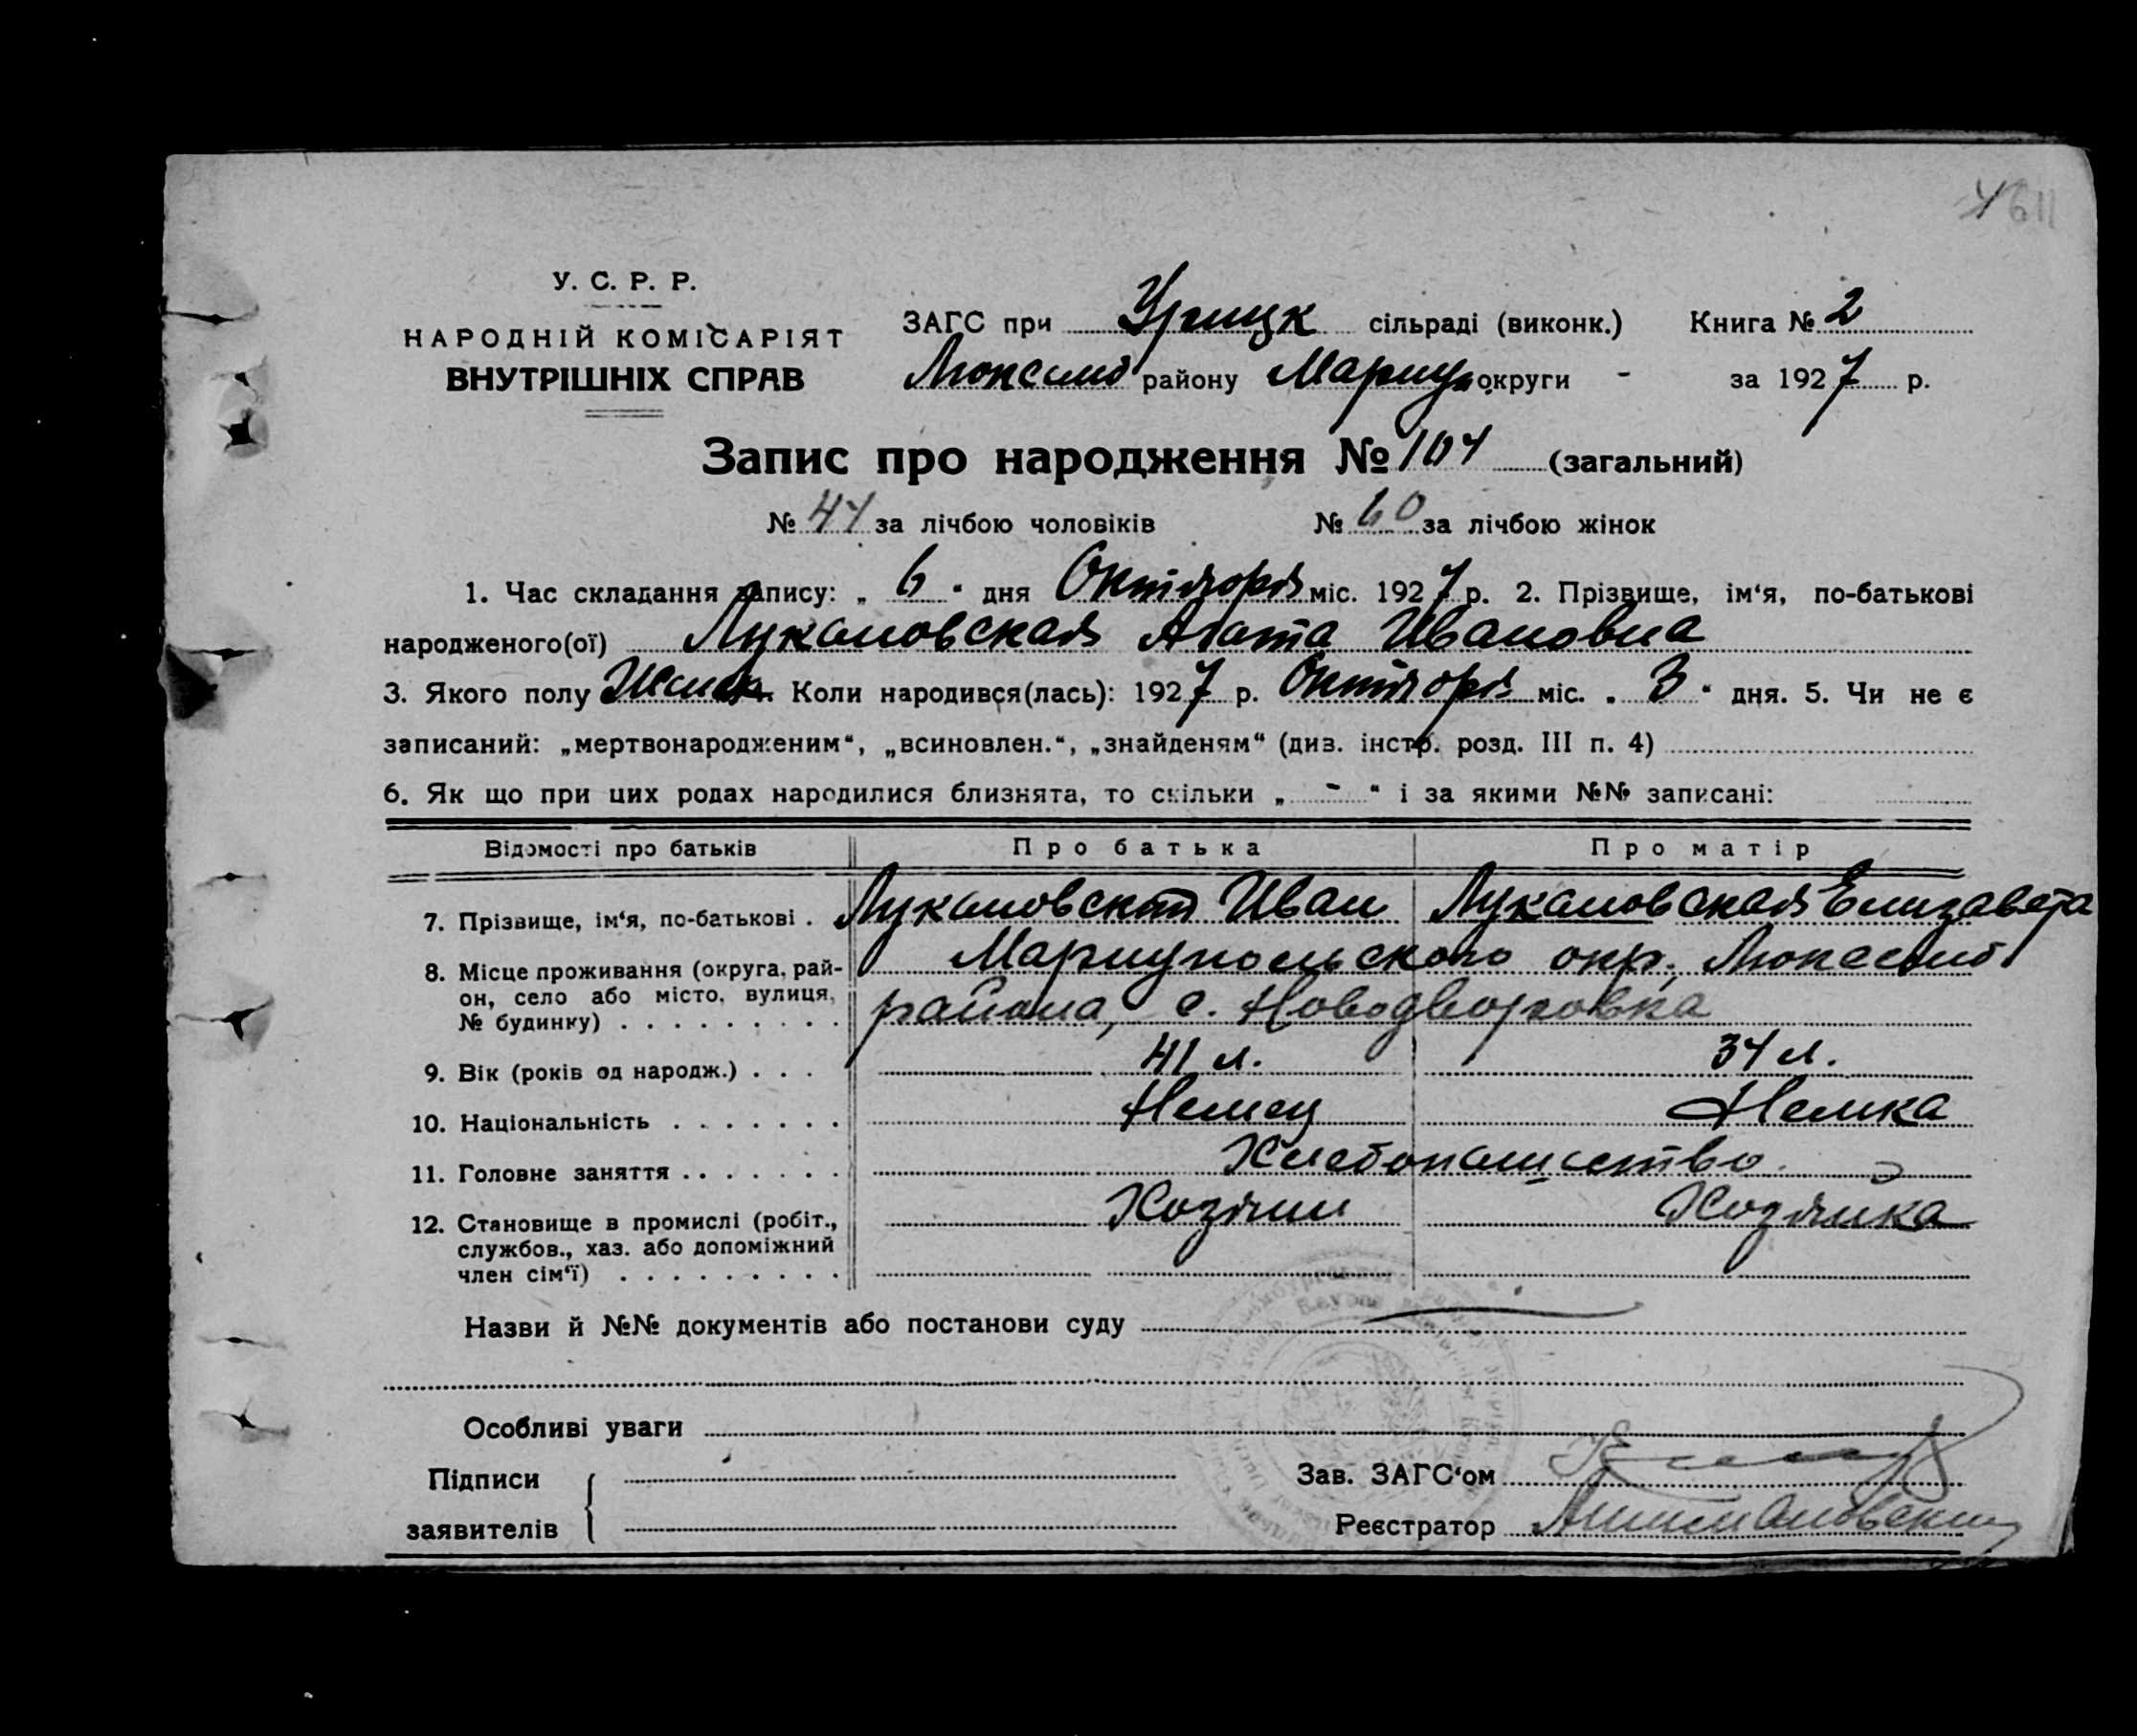 У. С. Р. Р.
НАРОДНІЙ КОМІСАРІЯТ
ВНУТРІШНІХ СПРАВ
ЗАГС при Урицк сільраді (виконк.) Книга № 2
району Мариуп округи - за 1927 р.
Запис про народження № 104 (загальний)
№ 44 за лічбою чоловіків № 60 за лічбою жінок
1. Час складання запису: „ 6 “ дня Октября міс. 1927 р. 2. Прізвище, ім‘я, по-батькові
народженого(ої) Лукановская Агата Ивановна
3. Якого полу Женск. Коли народився(лась): 1927 р. Октября міс. „ 3 “ дня. 5. Чи не є
записаний: „мертвонародженим“, „всиновлен.“, „знайденям“ (див. інстр. розд. III п. 4)
6. Як що при цих родах народилися близнята, то скільки „ - “ і за якими №№ записані:
Відомості про батьків Про батька Про матір
7. Прізвище, ім‘я, по-батькові . Лукановский Иван Лукановская Елизавета
8. Місце проживання (округа, рай-
он, село або місто, вулиця,
№ будинку) . . . . . . . . .
Мариупольского окр.
района, с. Новодворовка
9. Вік (років од народж.) . . . 41 л. 34 л.
10. Національність . . . . . . . Немец Немка
11. Головне заняття . . . . . . . Хлебопашество
12. Становище в промислі (робіт.,
службов., хаз. або допоміжний
член сім‘ї) . . . . . . . . .
Хозяин Хозяйка
Назви й №№ документів або постанови суду
Особливі уваги
Підписи
заявителів
Зав. ЗАГС‘ом
Реєстратор